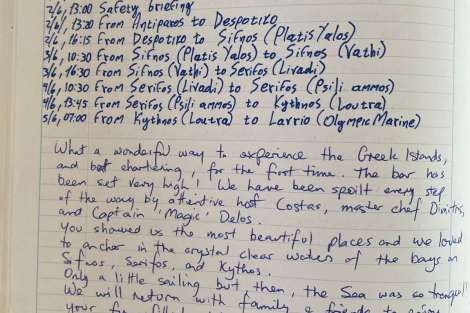 2/6, 13:00 Safety briefing
2/6, 13:20 From Antiparos to Despotiko
2/6, 16:15 From Despotiko to Sifnos (Platis Yalos)
3/6, 10:30 From Sifnos (Platis Yalos) to Sifnos (Vathi)
3/6, 16:30 From Sifnos (Vathi) to Serifos (Livadi)
4/6, 10:30 From Serifos (Livadi) to Serifos (Psili ammos)
4/6, 13:45 From Serifos (Psili ammos) to Kythnos (Loutra)
5/6, 07:00 From Kythnos (Loutra) to Lavrio (Olympic Marine)
What a wonderful way to experience the Greek Islands,
and boat chartering, for the first time. The bar has
been set very high! We have been spoilt every step
of the way by attentive host Costas, master chef Dimitris,
and Captain 'Magic' Delos.
You showed us the most beautiful places and we loved
to anchor in the crystal clear waters of the bays on
Sifnos, Serifos, and Kythos.
Only a little sailing but then, the Sea was so tranquil!
We will return with family & friends to enjoy
your